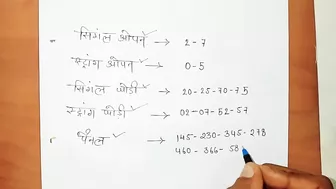 सिंगल ओपन → 2 - 7
स्ट्रांग ओपन → 0 - 5
सिंगल जोडी → 20 - 25 - 70 - 75
स्ट्रांग जोडी → 02 - 07 - 52 - 57
पॅनल → 145 - 230 - 345 - 278
460 - 366 - 58